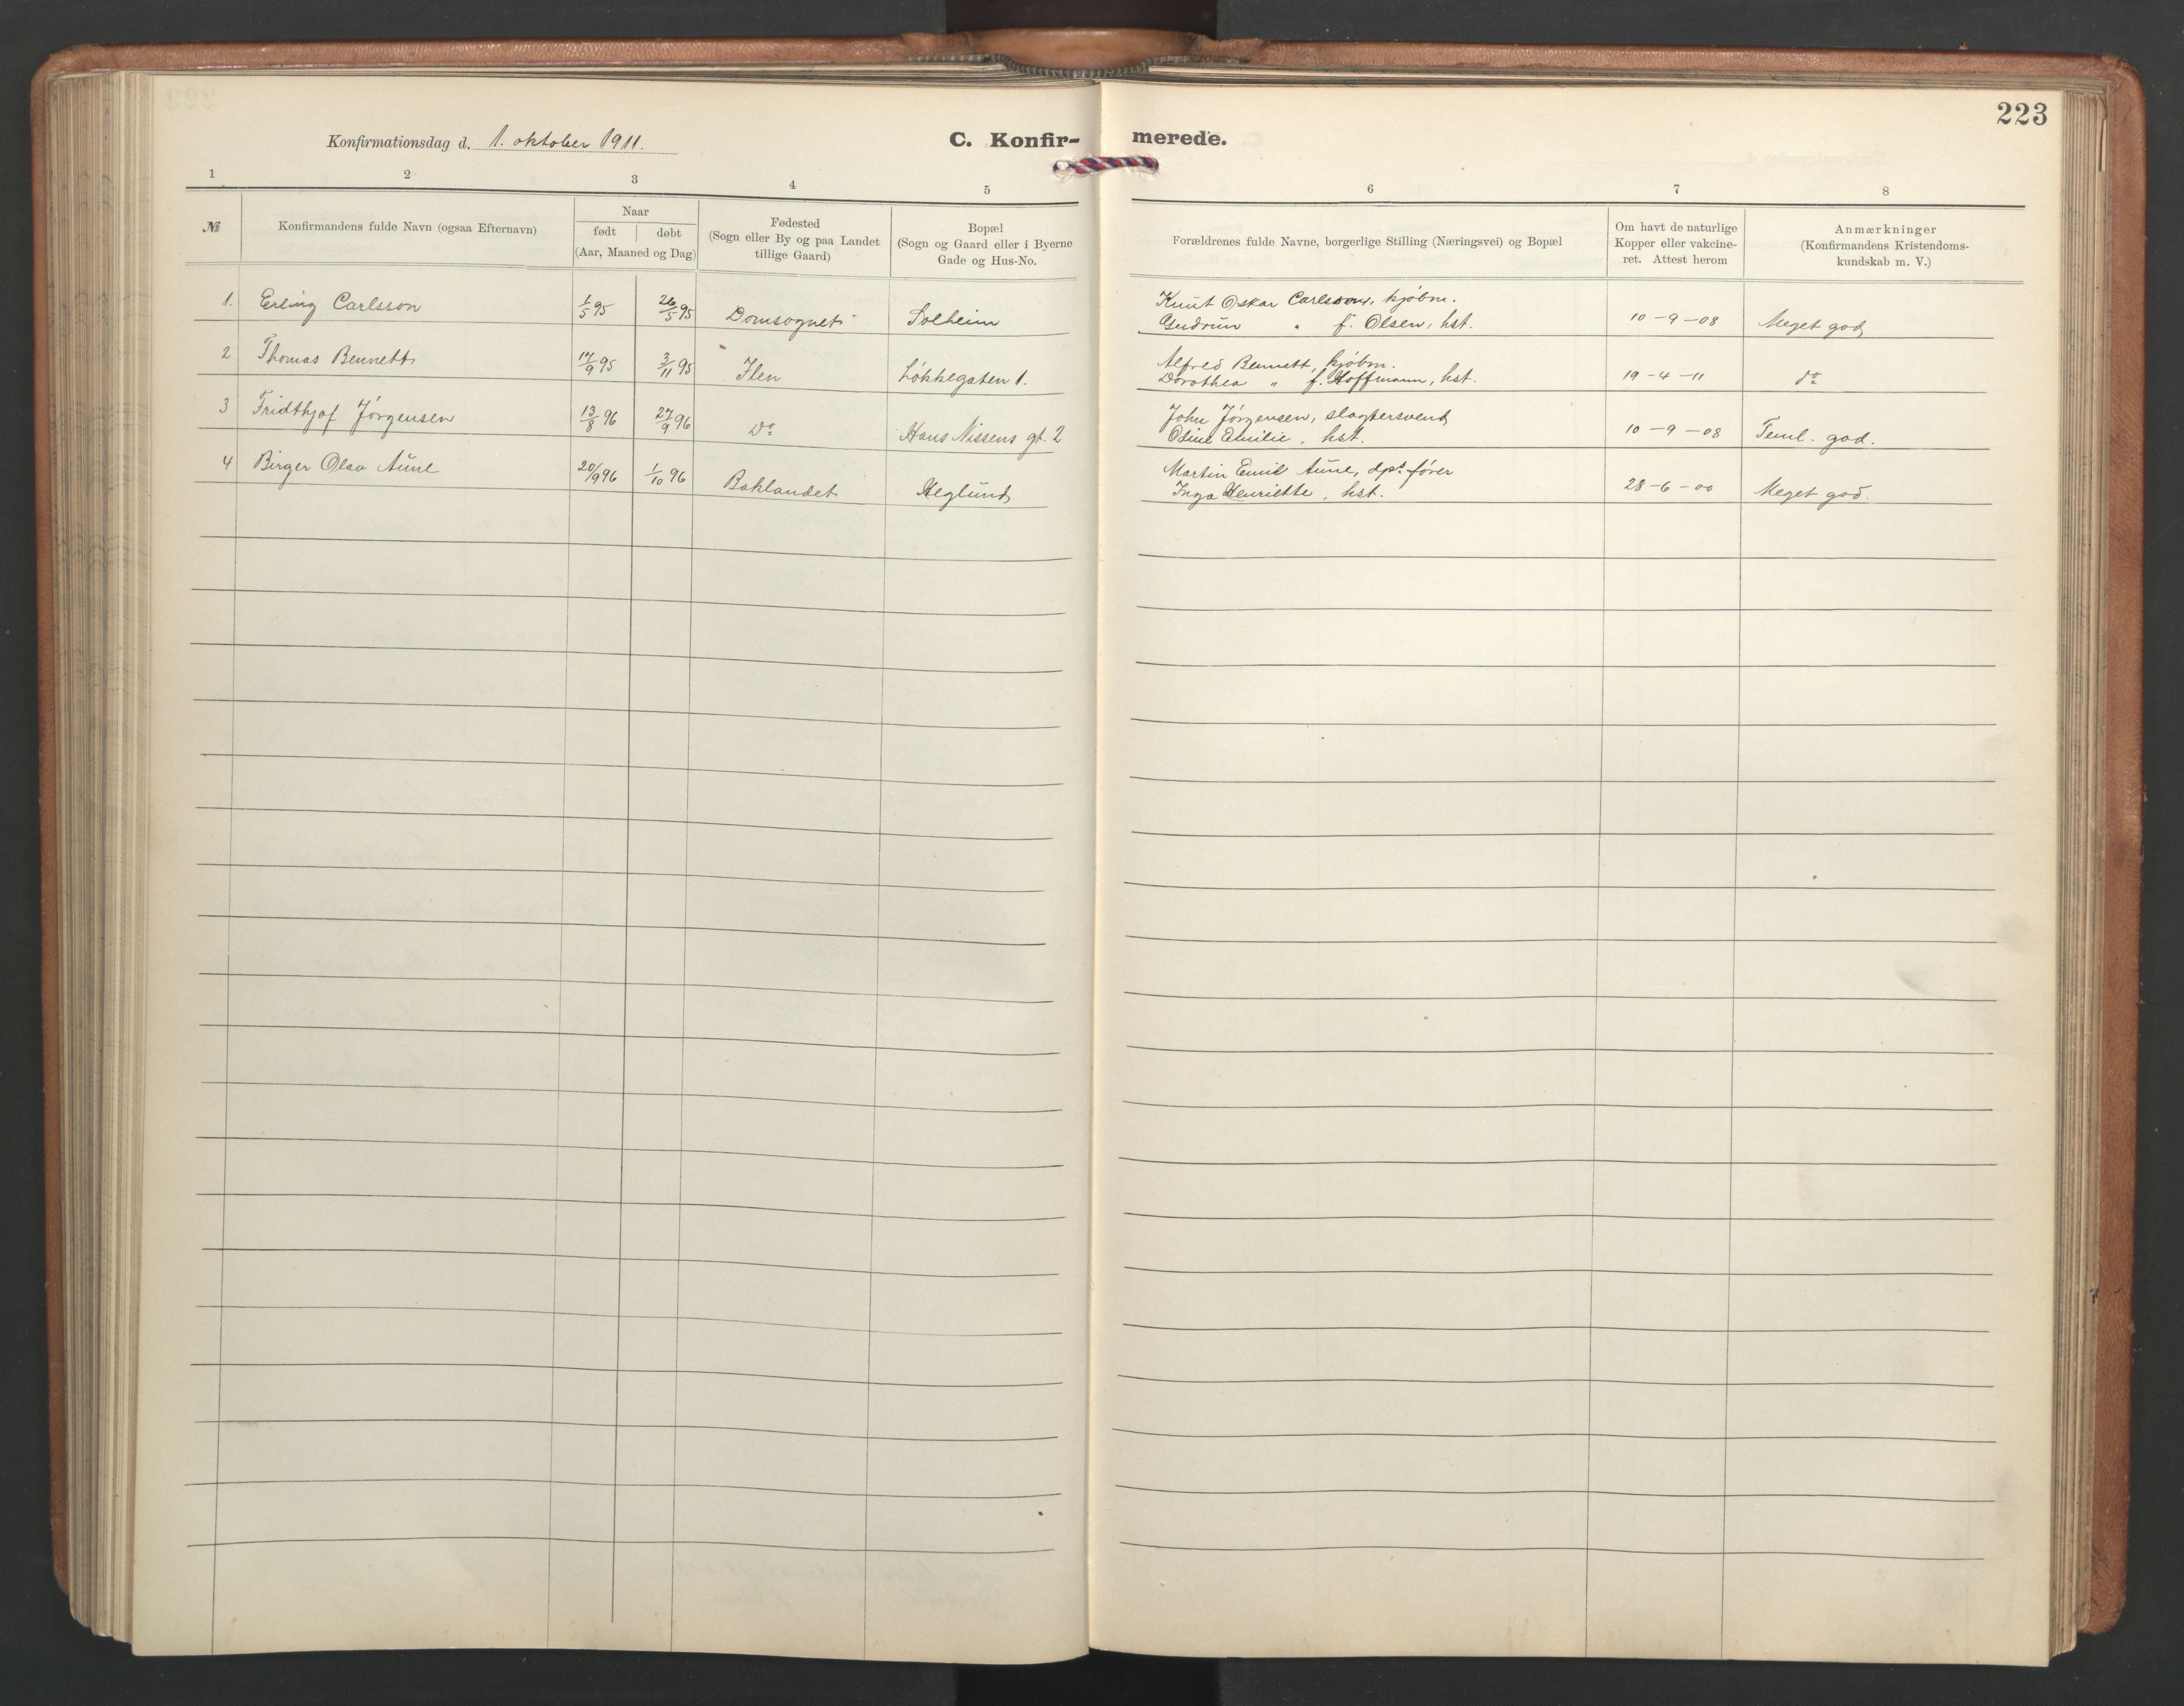 223
Konfirmationsdag d. 1. oktober 1911.
C. Konfirmerede.
1 2 3 4 5 6 7 8
№ Konfirmandens fulde Navn (ogsaa Efternavn) Naar født døbt (Aar, Maaned og Dag) Fødested (Sogn eller By og paa Landet tillige Gaard) Bopæl (Sogn og Gaard eller i Byerne Gade og Hus-No. Forældrenes fulde Navne, borgerlige Stilling (Næringsvei) og Bopæl Om havt de naturlige Kopper eller vakcineret. Attest herom Anmærkninger (Konfirmandens Kristendomskundskab m. V.)
1. Erling Carlsson 1/5 95 26/5 95 Domsognet Solheim Knut Oskar Carlsson, kjøbm.
Gudrun " f. Olsen, hst. 10-9-08 Meget god
2 Thomas Bennett 14/9 95 3/11 95 Ilen Løkkegaten 1. Alfred Bennett, kjøbm.
Dorothea " f. Hoffmann, hst. 19-4-11 do
3 Fridthjof Jørgensen 13/8 96 27/9 96 Do Hans Nissens gt. 2 John Jørgensen, slagtersvend
Oline Emilie, hst. 10-9-08 Teml. god.
4 Birger Olav Aune 20/9 96 1/10 96 Baklandet Heglund Martin Emil Aune, dps. fører
Inga Henriette, hst. 28-6-00 Meget god.